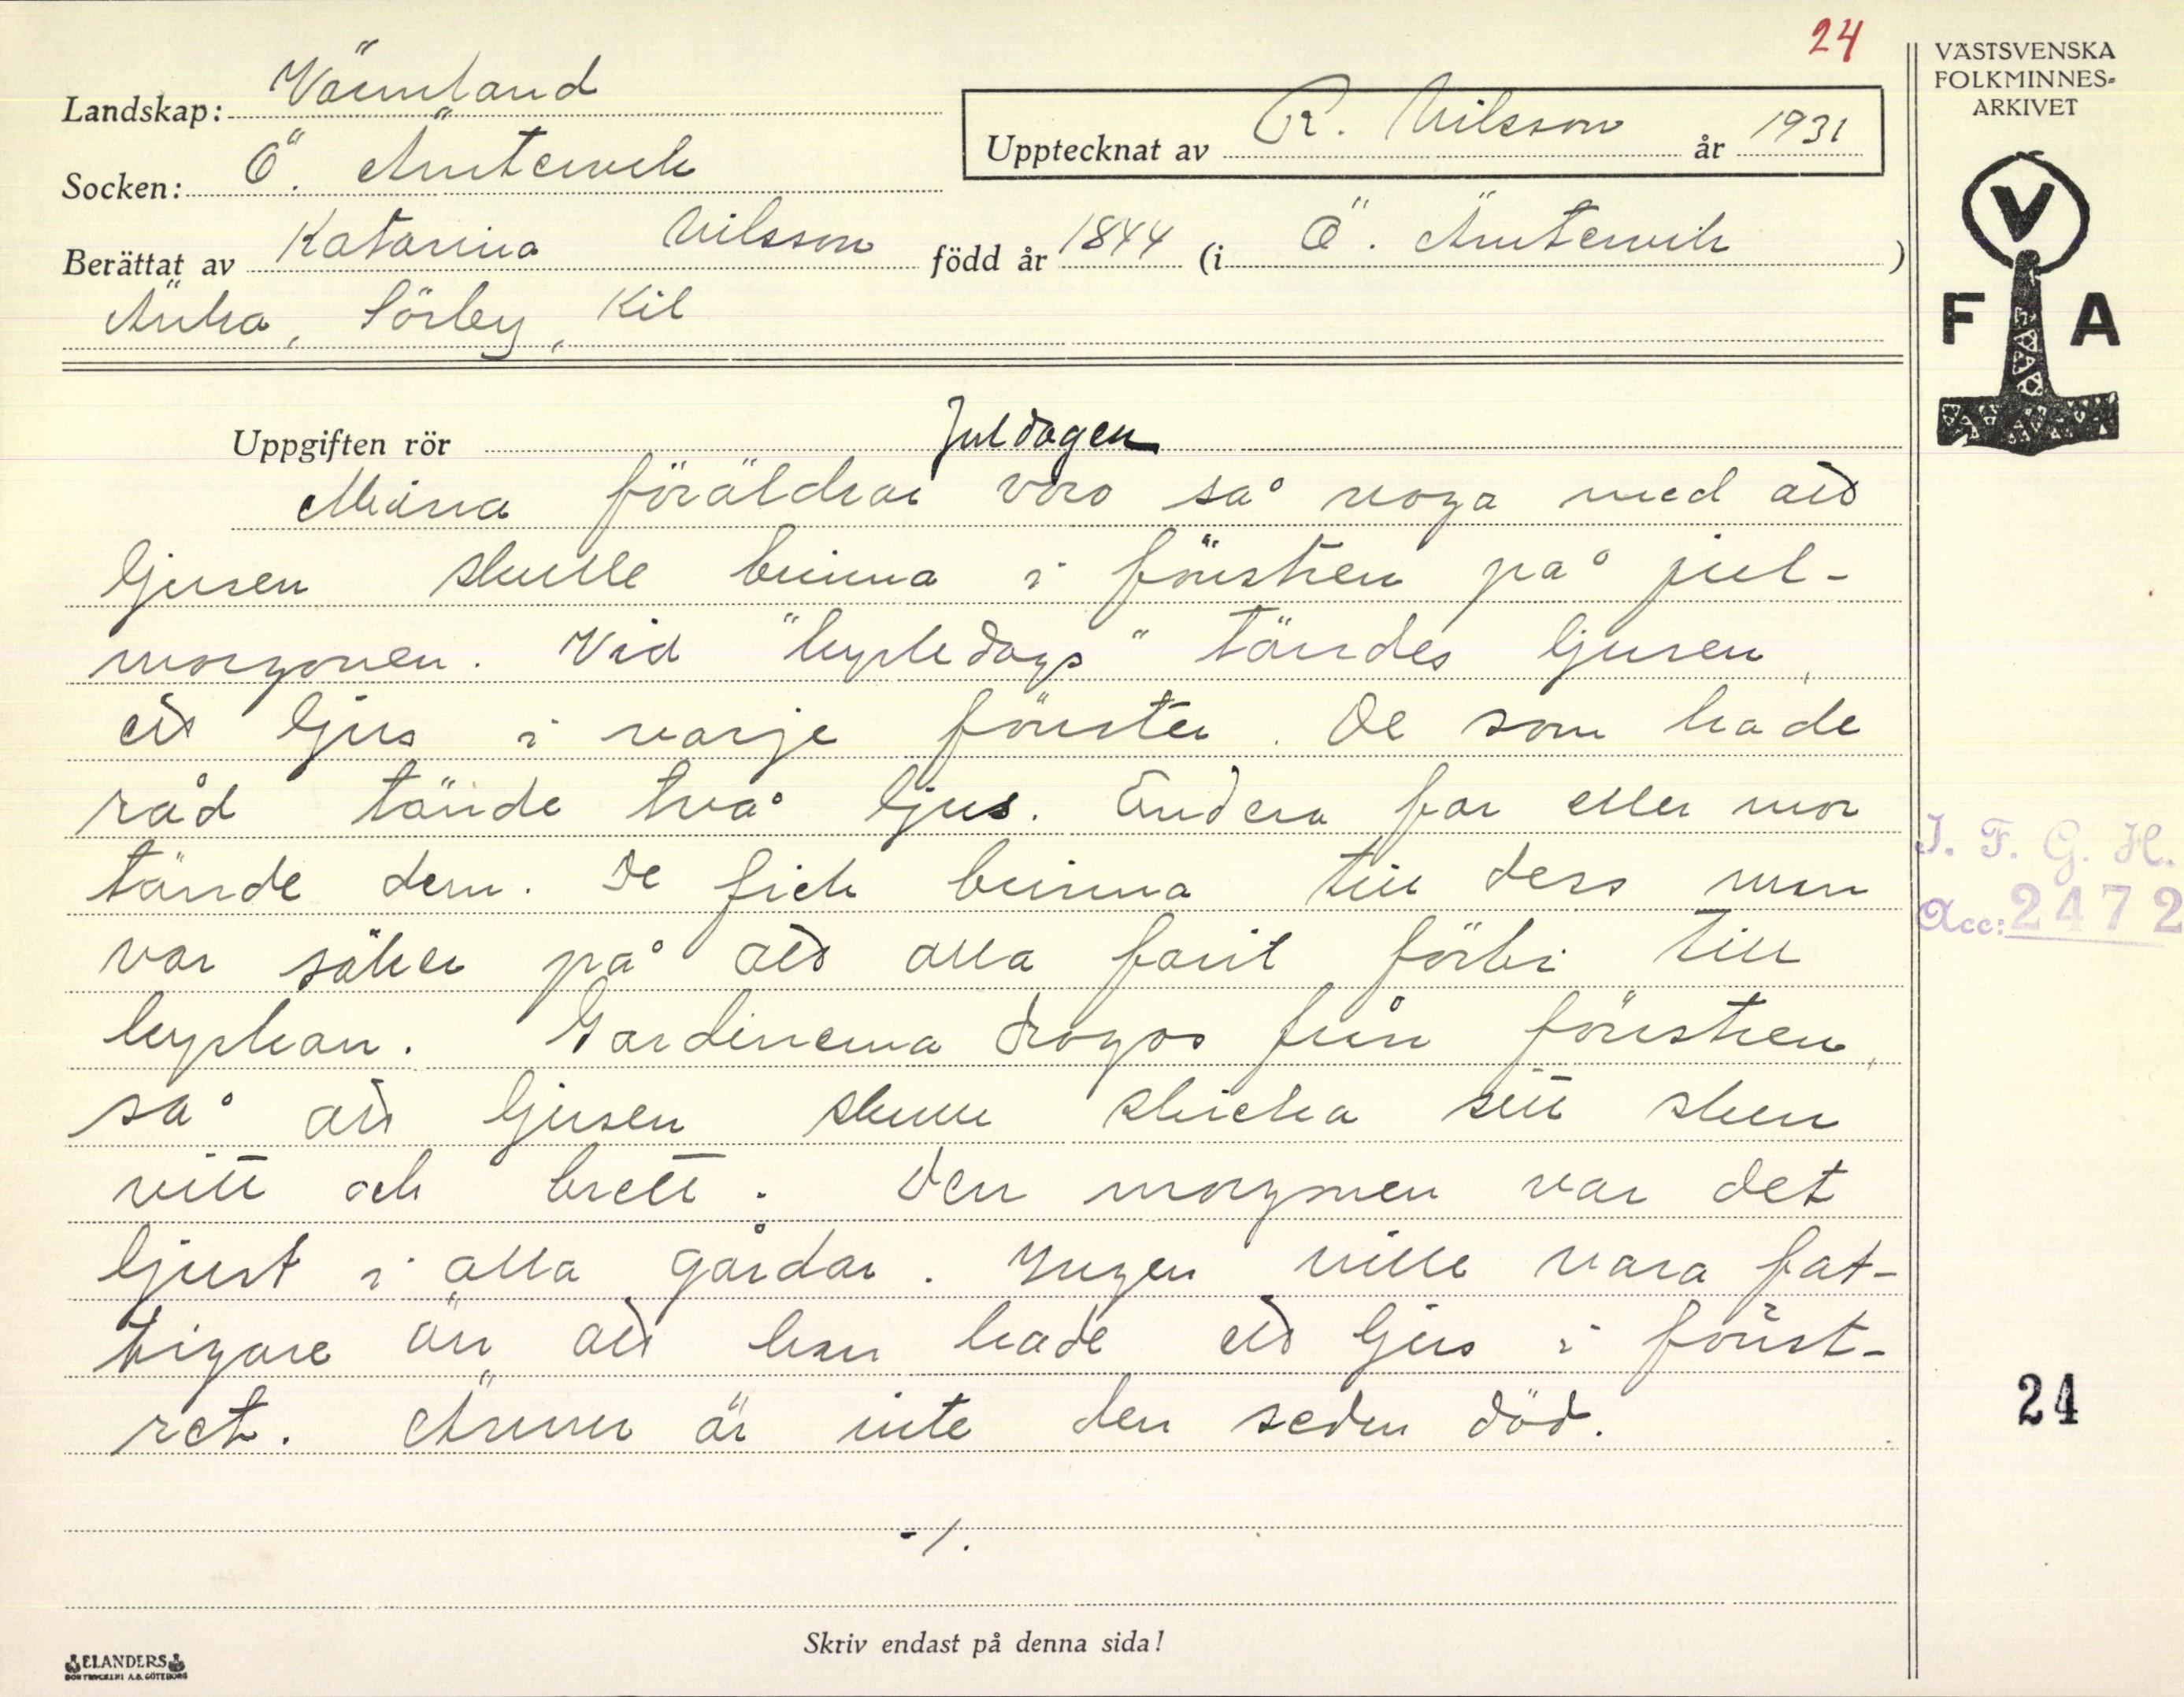 24
Landskap: Värmland
Socken: Ö. Ämtervik
Upptecknat av R. Nilsson år 1931
Berättat av Katarina Nilsson född år 1844 (i Ö. Ämtervik)
Änka, Sörby, Kil
VÄSTSVENSKA
FOLKMINNES-
ARKIVET
V
F A
Uppgiften rör Juldagen
Mina föräldrar voro så noga med att
ljusen skulle brinna i fönstren på jul-
morgonen. Vid "kyrkedags" tändes ljusen,
ett ljus i varje fönster. De som hade
råd tände två ljus. Endera far eller mor
tände dem. De fick brinna till dess man
var säker på att alla farit förbi till
kyrkan. Gardinerna drogos från fönstren,
så att ljusen skulle skicka sitt sken
vitt och brett. Den morgonen var det
ljust i alla gårdar. Ingen ville vara fat-
tigare än att han hade ett ljus i fönst-
ret. Ännu är inte den seden död.
-/.
I. F. G. H.
Acc: 2472
24
Skriv endast på denna sida!
ELANDERS
BOKTRYCKERI A.B. GÖTEBORG